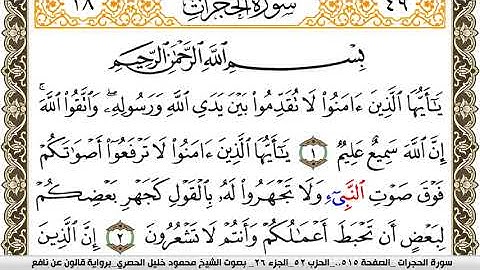 ١٨ سورة الحجرات ٤٩
بِسْمِ اللَّهِ الرَّحْمَٰنِ الرَّحِيمِ
يَٰٓأَيُّهَا ٱلَّذِينَ ءَامَنُوا۟ لَا تُقَدِّمُوا۟ بَيْنَ يَدَىِ ٱللَّهِ وَرَسُولِهِۦ وَٱتَّقُوا۟ ٱللَّهَ
إِنَّ ٱللَّهَ سَمِيعٌ عَلِيمٌ ١ يَٰٓأَيُّهَا ٱلَّذِينَ ءَامَنُوا۟ لَا تَرْفَعُوٓا۟ أَصْوَٰتَكُمْ
فَوْقَ صَوْتِ ٱلنَّبِىٓءِ وَلَا تَجْهَرُوا۟ لَهُۥ بِٱلْقَوْلِ كَجَهْرِ بَعْضِكُمْ
لِبَعْضٍ أَن تَحْبَطَ أَعْمَٰلُكُمْ وَأَنتُمْ لَا تَشْعُرُونَ ٢ إِنَّ ٱلَّذِينَ
سورة الحجرات _الصفحة ٥١٥_ .. الحزب ٥٢ _الجزء ٢٦ _ بصوت الشيخ محمود خليل الحصري_برواية قالون عن نافع